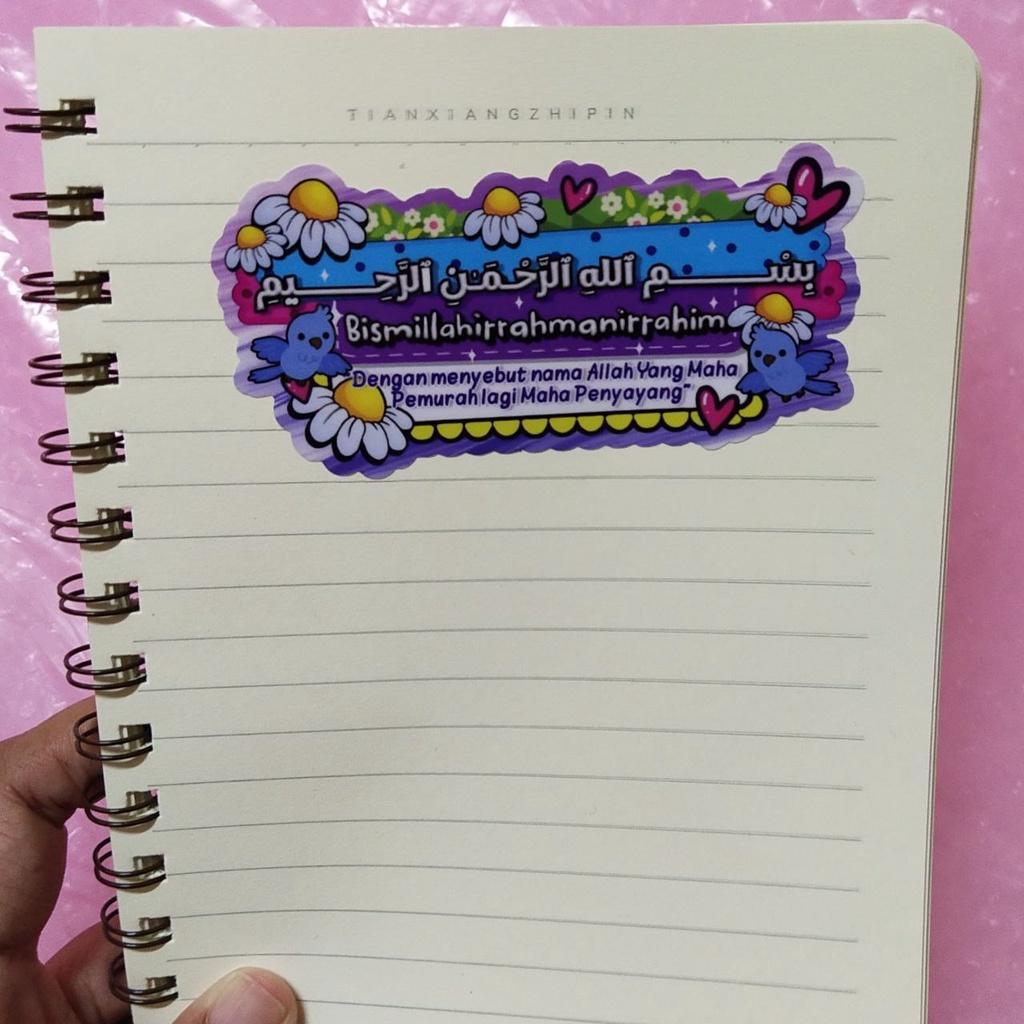 TIANXIANGZHIPIN
بِسْــــــمِ ٱللهِ ٱلرَّحْمَـٰنِ ٱلرَّحِــــــيمِ
Bismillahirrahmanirrahim
"Dengan menyebut nama Allah Yang Maha
Pemurah lagi Maha Penyayang"